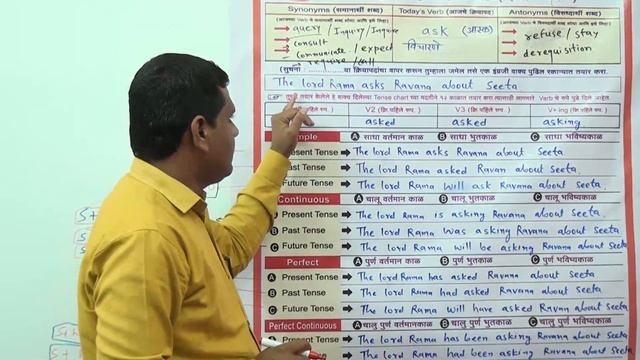 Synonyms (समानार्थी शब्द)
Today's Verb (आजचे क्रियापद)
Antonyms (विरुध्दार्थी शब्द)
query / Inquiry / Inquire
consult
communicate / expect
require / call
ask (आस्क)
विचारणे
refuse / stay
derequisition
(सुचना : ........... या क्रियापदांचा वापर करून तुम्हाला जमेल तसे एक इंग्रजी वाक्य पुढिल रकान्यात तयार करा.
The lord Rama asks Ravana about Seeta
तुम्ही तयार केलेले हे वाक्य दिलेल्या Tense chart च्या मदतीने १२ काळात तयार करा. त्यासाठी लागणारे Verb चे रुपे पुढे दिले आहेत.
पहिले रुप.
V2 (क्रि.पहिले रुप.
V3 (क्रि.पहिले रुप.
V+ing (क्रि.पहिले रुप.
asked asked asking
Simple A साधा वर्तमान काळ B साधा भुतकाळ C साधा भविष्यकाळ
Present Tense The lord Rama asks Ravana about Seeta
Past Tense The lord Rama asked Ravan about Seeta.
Future Tense The lord Rama will ask Ravana about Seeta.
Continuous A चालू वर्तमान काळ B चालू भुतकाळ C चालू भविष्यकाळ
A Present Tense The lord Rama is asking Ravana about Seeta.
B Past Tense The lord Rama was asking Ravana about Seeta.
C Future Tense The lord Rama will be asking Ravana about Seeta
Perfect A पुर्ण वर्तमान काळ B पुर्ण भुतकाळ C पुर्ण भविष्यकाळ
A Present Tense The lord Rama has asked Ravana about Seeta.
B Past Tense The lord Rama had asked Ravana about Seeta.
C Future Tense The lord Rama will have asked Ravan about Seeta
Perfect Continuous A चालू पुर्ण वर्तमानकाळ B चालू पुर्ण भुतकाळ C चालू पुर्ण भविष्यकाळ
The lord Rama has been asking Ravana about
The lord Rama had been asking Ravana about Seeta